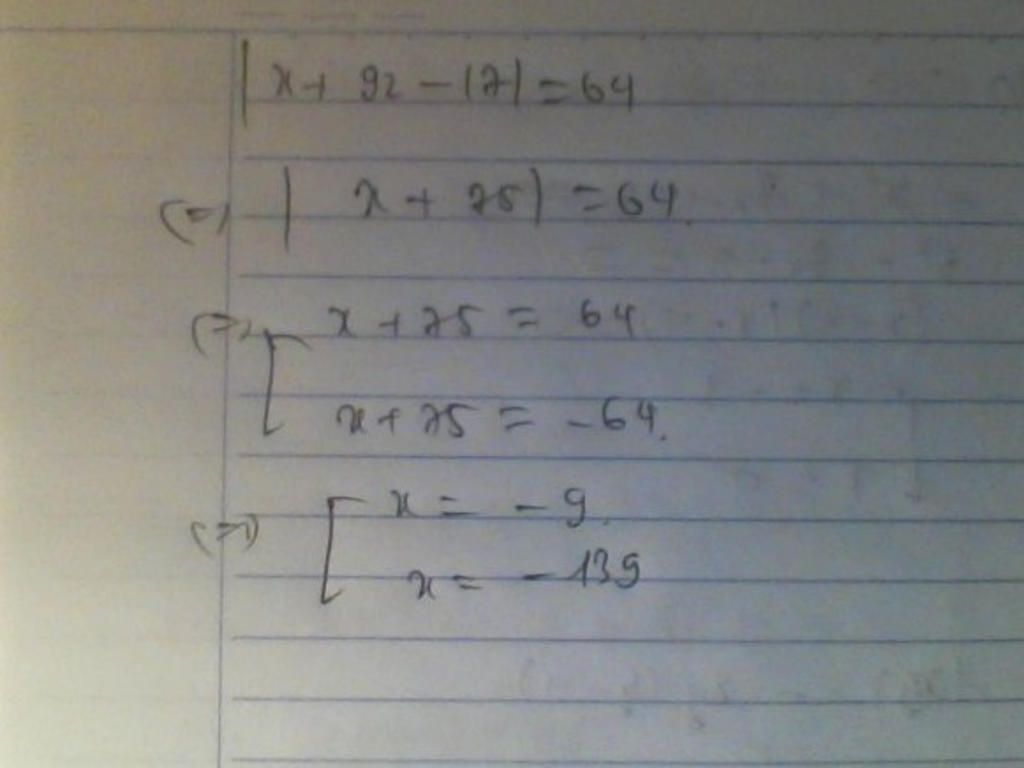 |x + 92 - 17| = 64
(=) | x + 75| = 64.
(=) [ x + 75 = 64
x + 75 = -64.
(=) [ x = -9.
x = -139